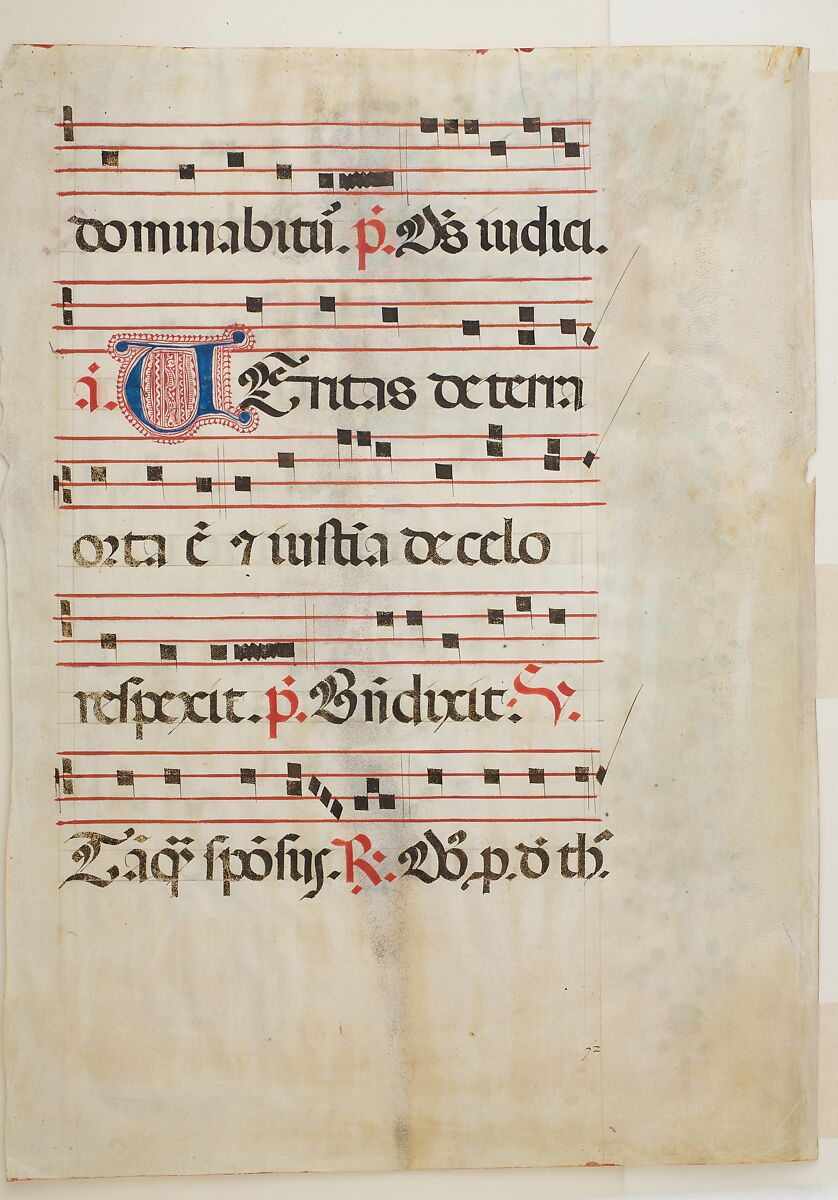 dominabitur̄. p̄. Ds̄ iudiciū.
a̅. VEritas de terra
orta ē ⁊ iustitia de celo
respexit. p̄. Bn̄dixit. V.
Tāq̄ spōsus. R. Dō p. d
72